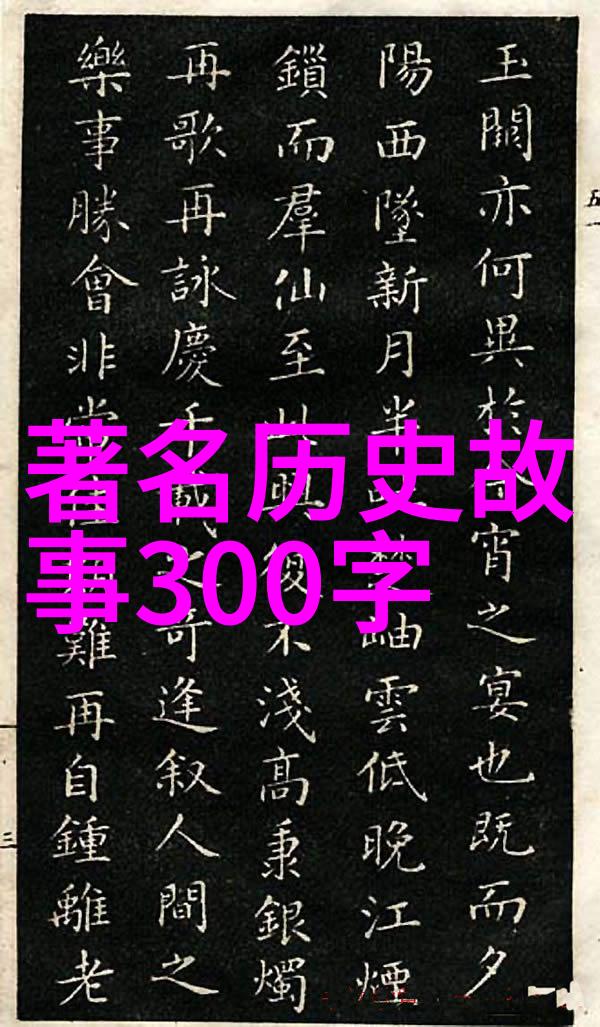 玉闕亦何異於宵之宴也既而夕
陽西墜新月半楚岫雲低晚江煙
鎖而羣仙至此興復不淺高秉銀燭
再歌再詠慶千載之奇逢叙人間之
樂事勝會非常難再自鍾離老
著名历史故
事300字
五一
三